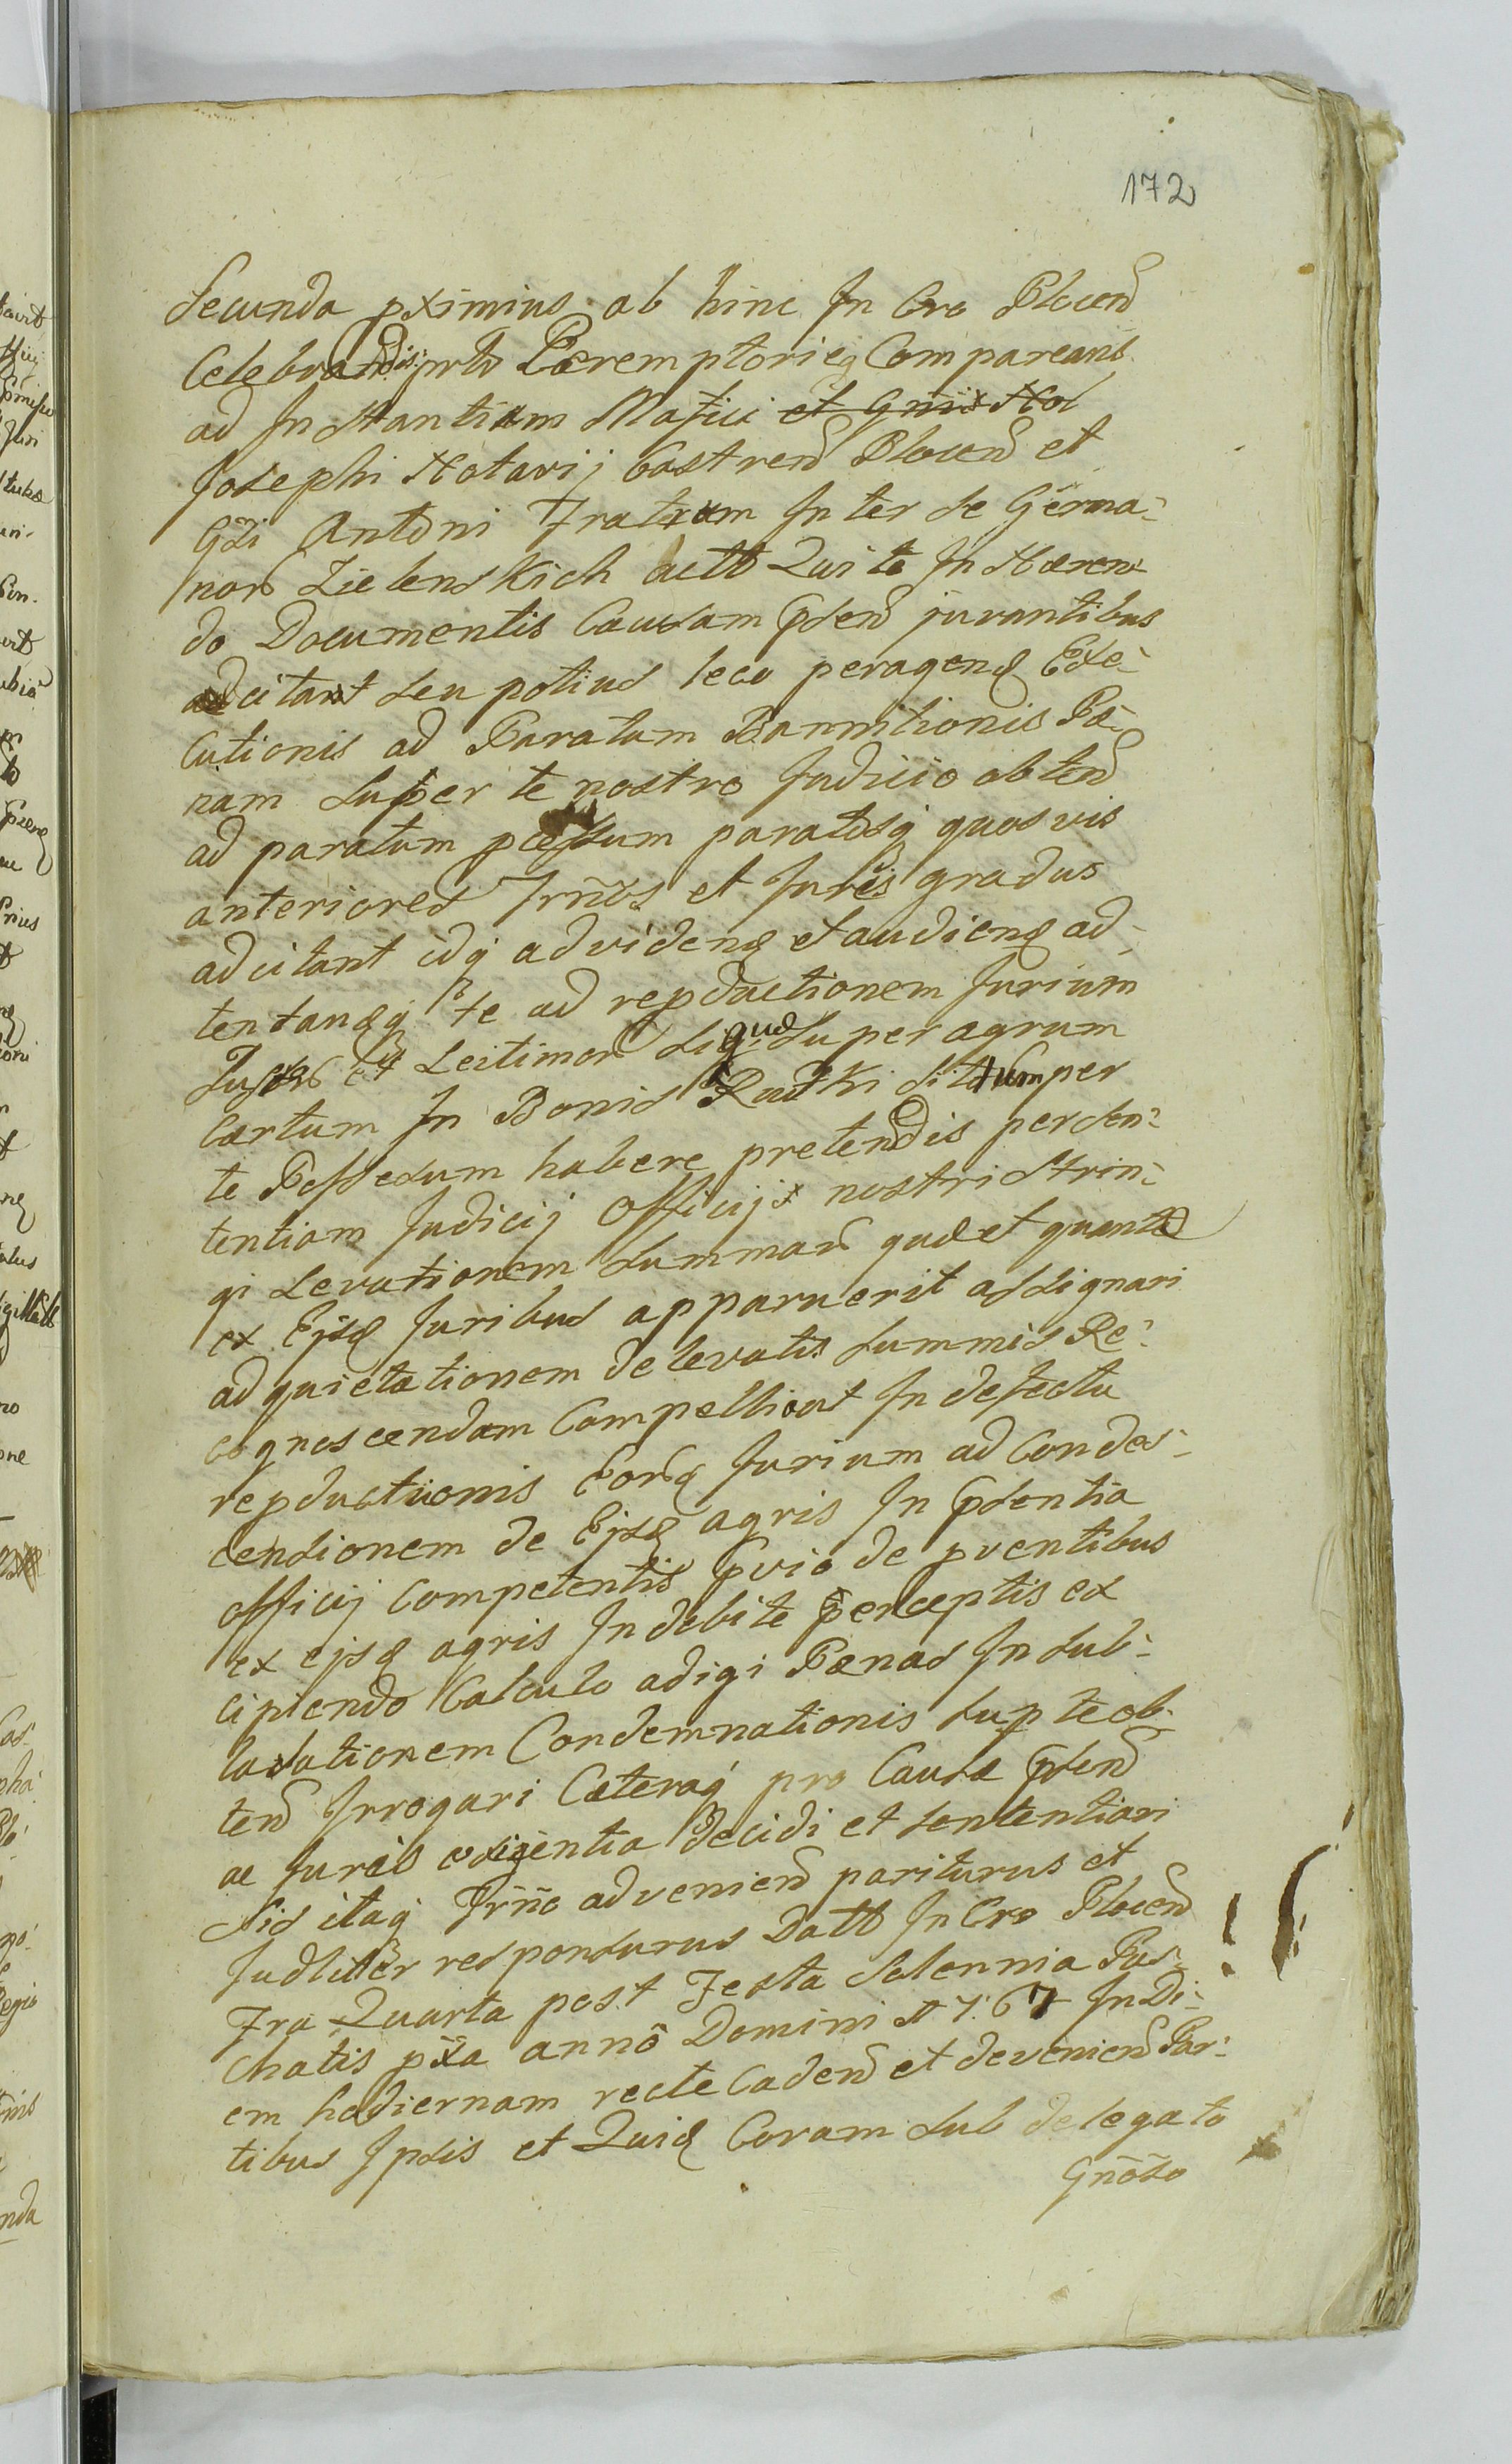 172
Secunda pximius ab hinc In Cro Plocen
Celebrandis prto Peremptorieq Compareans
ad Instantiam Mafici et Gnis Nol
Josephi Notarij Castren Plocen et
Gsi Antoni Fratrum Inter se Germa-
nor Zielenskich actt Qui te In Haeren-
do Documentis Causam psen juvantibus
adcitant seu potius leco peragend Exe-
cutionis ad Paratam Bannitionis Pae-
nam super te nostro Judicio obten
ad paratum pcessum paratosq quosvis
anteriores Irnos et Juris gradus
adcitant idq ad vidend et audiend ad-
tentandq te ad repductionem Jurium
et Leitimor siquae super agrum
certum In Bonis Rudki situm per
te Possesum habere pretendis per sen-
tentiam Judicij Officijx nostri strin-
gi Levationem summar quae et quantae
ex Ejsd Juribus apparuerit assignari
ad quietationem de levatis summis Re-
cognoscendam Compelli aut In defectu
repductionis Eord Jurium ad Condes-
censionem de Ejsd agris In psentia
officij Competentis pvio de pventibus
ex ejsd agris Indebite perceptis ex
cipiendo Calculo adigi Paenas In sub-
laxationem Condemnationis sup te ob-
ten Irrogari Caeteraq pro Causae psen
ac Juris exigentia Decidi et sententiari
Sis itaq Irno ad venien pariturus et
Judliter responsurus Datt In Cro Plocen
Fra Quarta post Festa Solennia Pas-
chatis pxa anno Domini 1767 In Di-
em hodiernam recte Caden et devenien Par-
tibus Ipsis et Quid Coram sub delegato
Gnoso